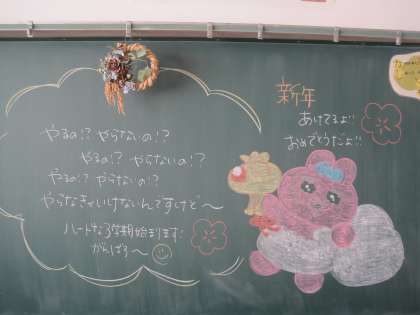 やるの!? やらないの!?
やるの!? やらないの!?
やるの!? やらないの!?
やらなきゃいけないんですけど〜
ハードな3学期始まります!
がんばろ〜
新年
あけてるよ!!
おめでとうだよ!!